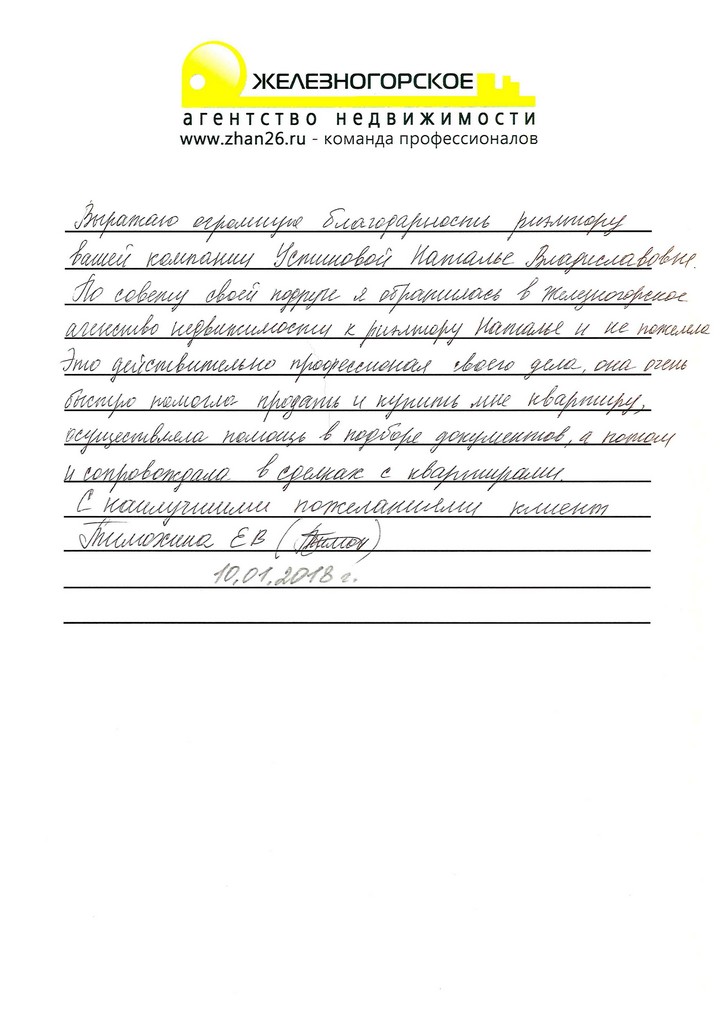 ЖЕЛЕЗНОГОРСКОЕ
агентство недвижимости
www.zhan26.ru - команда профессионалов
Выражаю огромную благодарность риэлтору
вашей компании Устиновой Наталье Владиславовне.
По совету своей подруги я обратилась в Железногорское
агенство недвижимости к риэлтору Наталье и не пожелела
Это действительно професионал своего дела, она очень
быстро помогла продать и купить мне квартиру,
осуществляла помощь в подборе документов, а потом
и сопровождала в сделках с квартирами.
С наилучшими пожеланиями клиент
Тимохина ЕВ (Тимох)
10.01.2018 г.